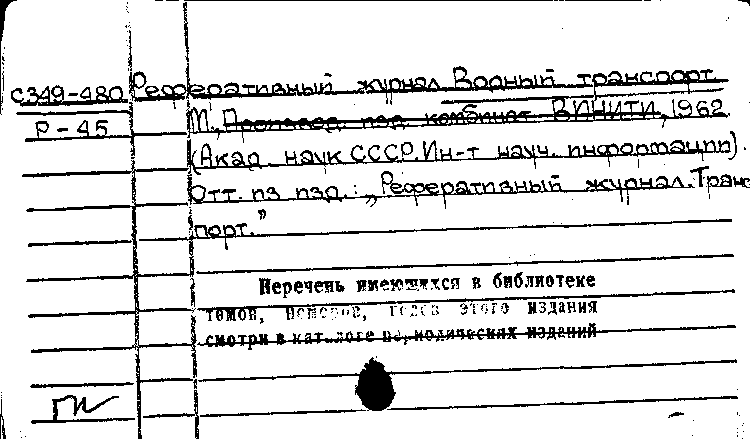 С349-480 Реферативный журнал. Водный транспорт.
Р-45 М., Производ. изд. комбинат ВИНИТИ, 1962
(Акад. наук СССР. Ин-т науч. информации).
Отт. из изд.: „Реферативный журнал. Транс
порт."
Перечень имеющихся в библиотеке
томов, номеров, годов этого издания
смотри в каталоге периодических изданий
ГИ